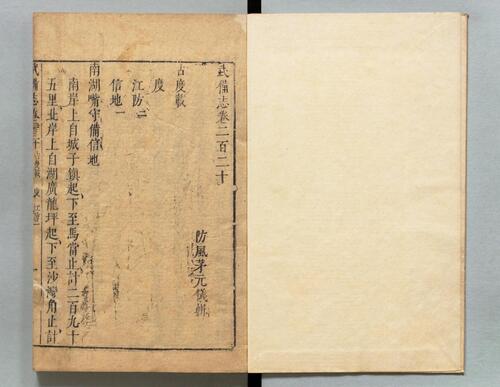 武備志卷二百二十
防風茅元儀輯
占度載
度
江防二
信地一
南湖嘴守備信地
南岸上自城子鎮起下至馬當止計二百九十
五里北岸上自湖廣龍坪起下至沙灣角止計
武備志卷